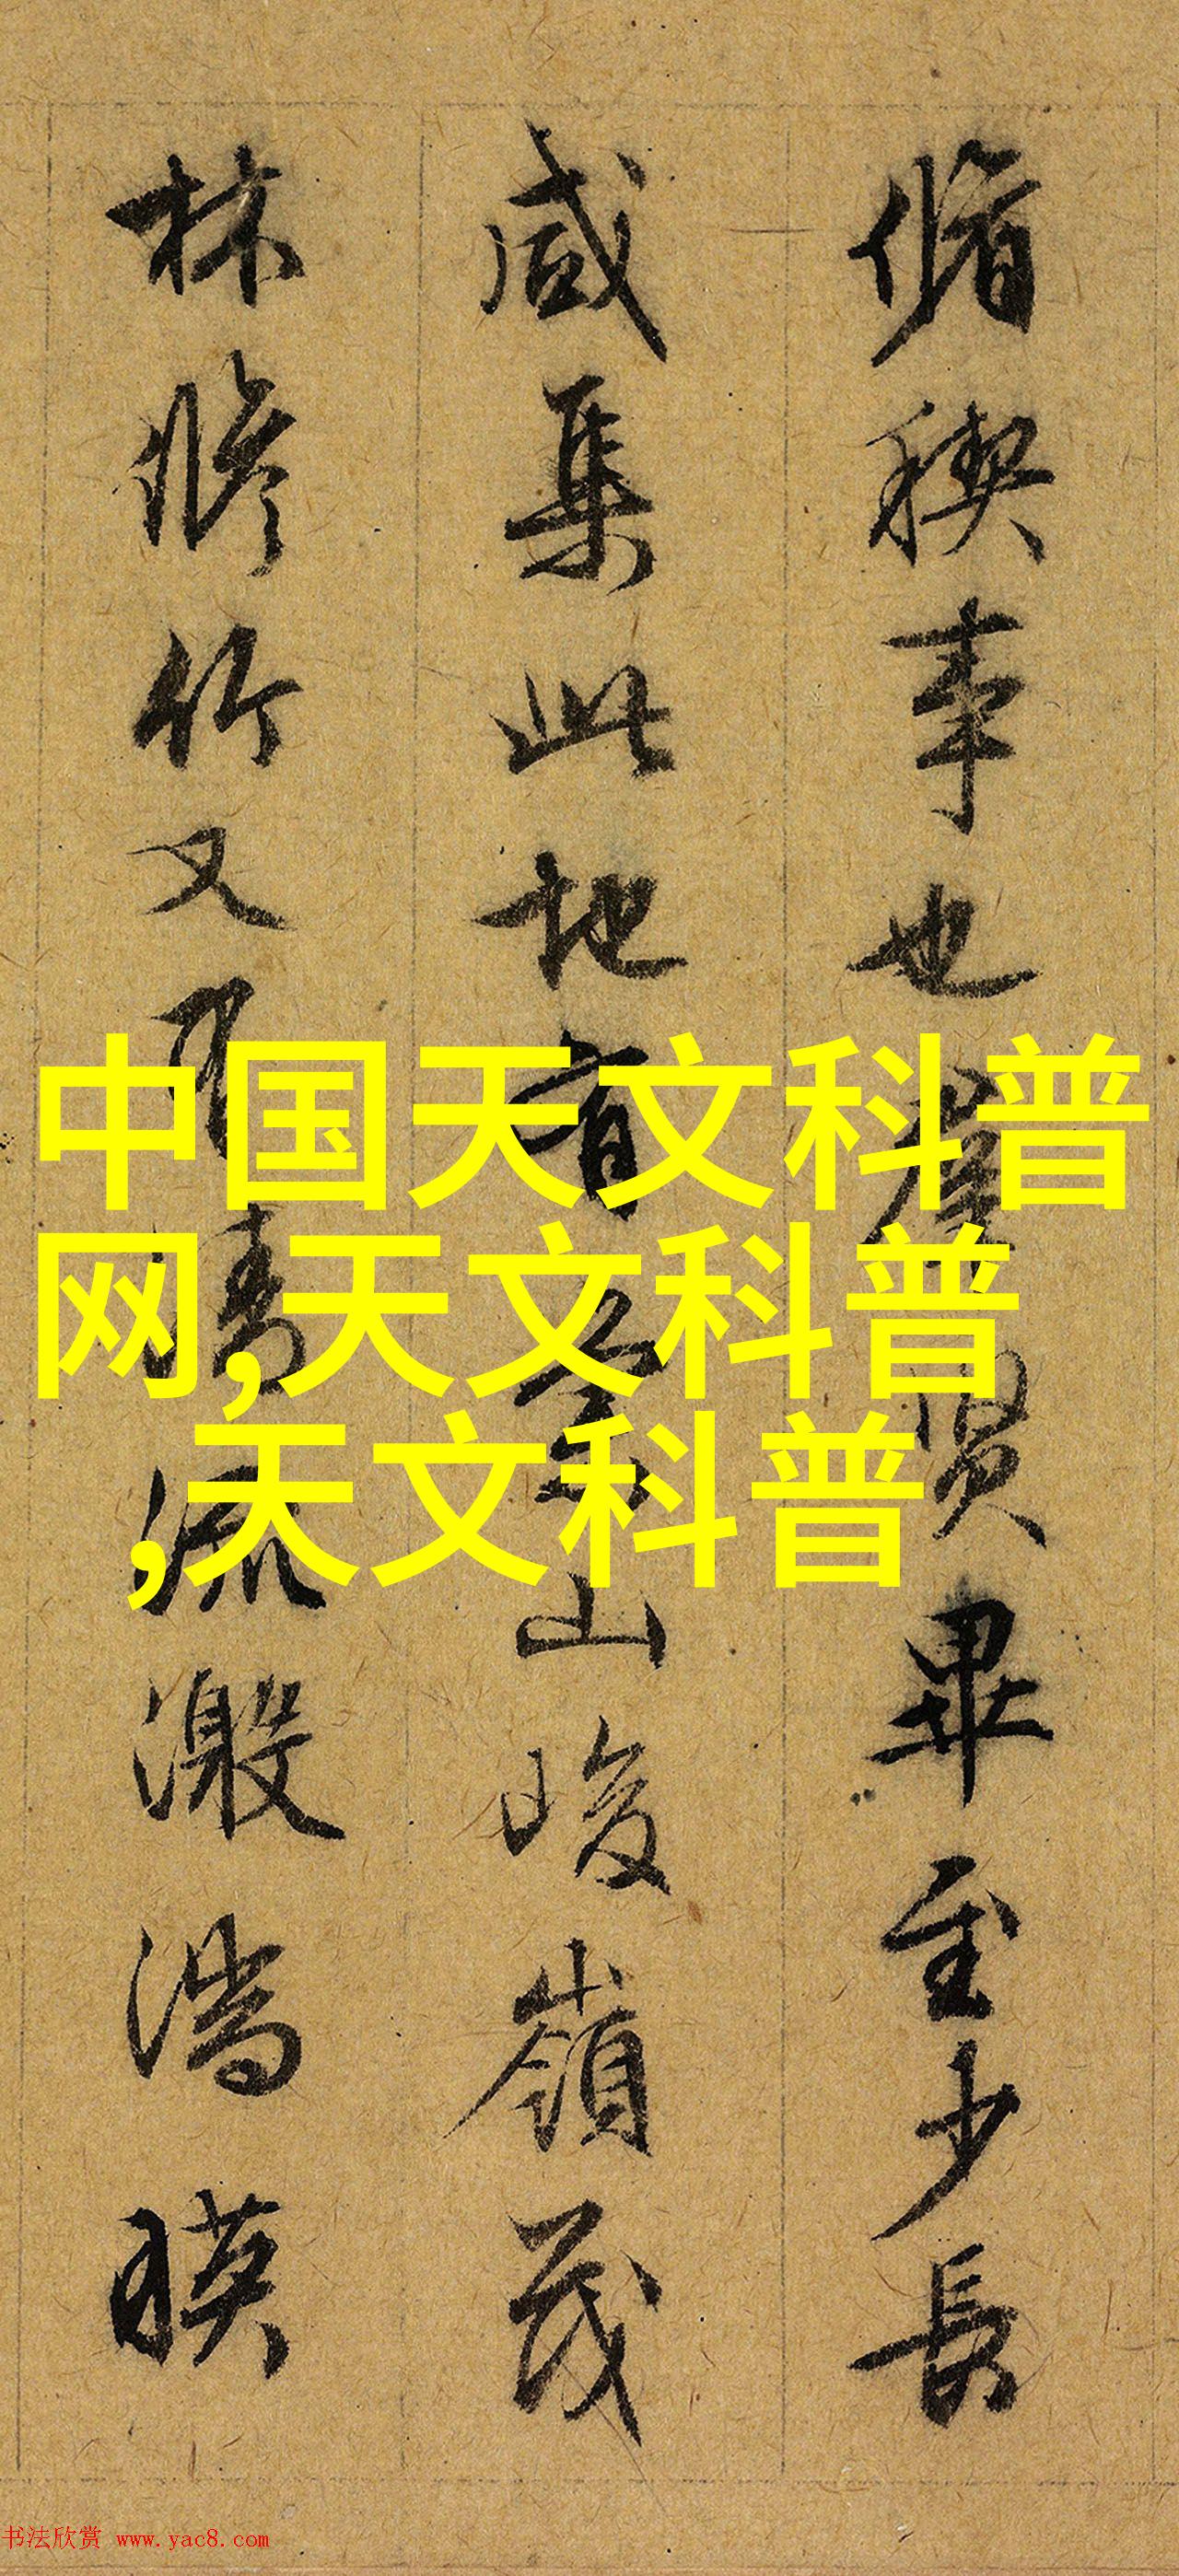 脩稧事也羣賢畢至少長
咸集此地有崇山峻領茂
林脩竹又有清流激湍暎
中国天文科普
网,天文科普
,天文科普
书法欣赏 www.yac8.com